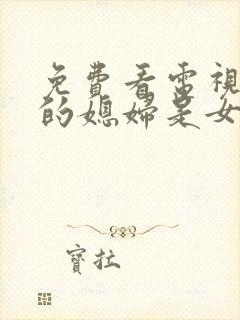 免費看電視
的媳婦是女
寶拉